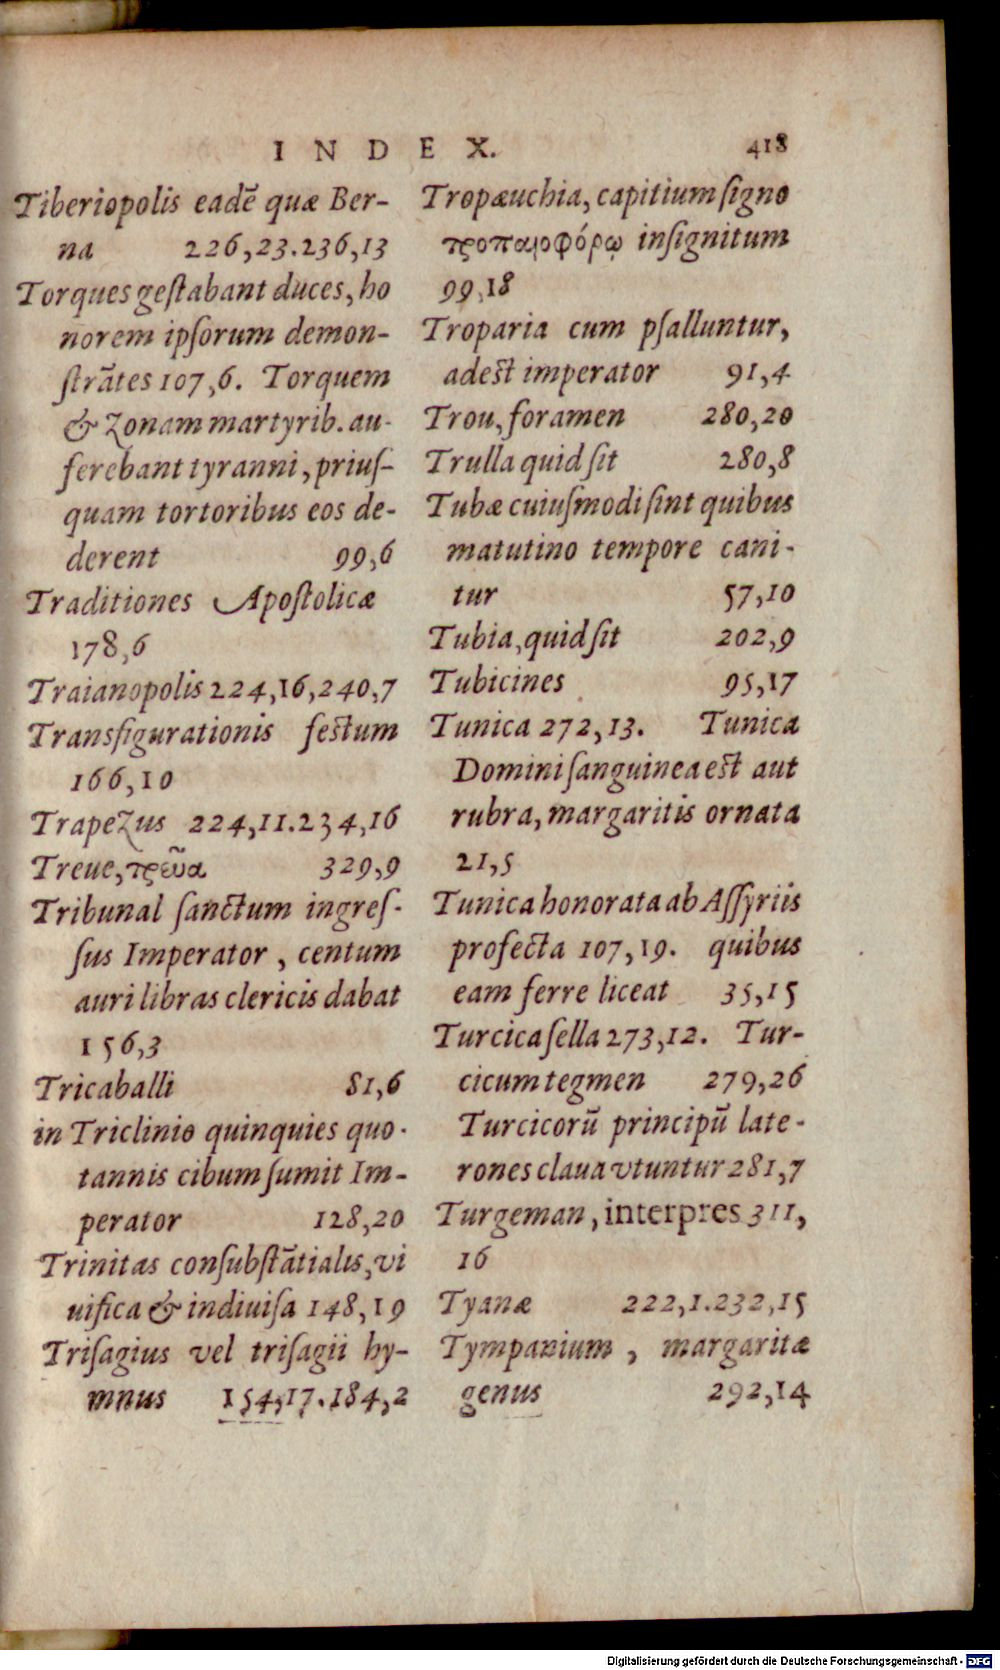 INDEX. 418
Tiberiopolis eadē quæ Ber-
na 226,23.236,13
Torques geſtabant duces, ho
norem ipſorum demon-
ſtrātes 107,6. Torquem
& zonam martyrib. au-
ferebant tyranni, priuſ-
quam tortoribus eos de-
derent 99,6
Traditiones Apoſtolicæ
178,6
Traianopolis 224,16,240,7
Transfigurationis feſtum
166,10
Trapezus 224,11.234,16
Treue, τρεῦα 329,9
Tribunal ſanctum ingreſ-
ſus Imperator, centum
auri libras clericis dabat
156,3
Tricaballi 81,6
in Triclinio quinquies quo-
tannis cibum ſumit Im-
perator 128,20
Trinitas conſubſtātialis, vi
uifica & indiuiſa 148,19
Triſagius vel triſagii hy-
mnus 154,17.184,2
Tropæuchia, capitium ſigno
τροπαιοφόρῳ inſignitum
99,18
Troparia cum pſalluntur,
adeſt imperator 91,4
Trou, foramen 280,20
Trulla quid ſit 280,8
Tubæ cuiuſmodi ſint quibus
matutino tempore cani-
tur 57,10
Tubia, quid ſit 202,9
Tubicines 95,17
Tunica 272,13. Tunica
Domini ſanguinea eſt aut
rubra, margaritis ornata
21,5
Tunica honorata ab Aſſyriis
profecta 107,19. quibus
eam ferre liceat 35,15
Turcica ſella 273,12. Tur-
cicum tegmen 279,26
Turcicorū principū late-
rones claua vtuntur 281,7
Turgeman, interpres 311,
16
Tyanæ 222,1.232,15
Tympanium, margaritæ
genus 292,14
Digitalisierung gefördert durch die Deutsche Forschungsgemeinschaft - DFG